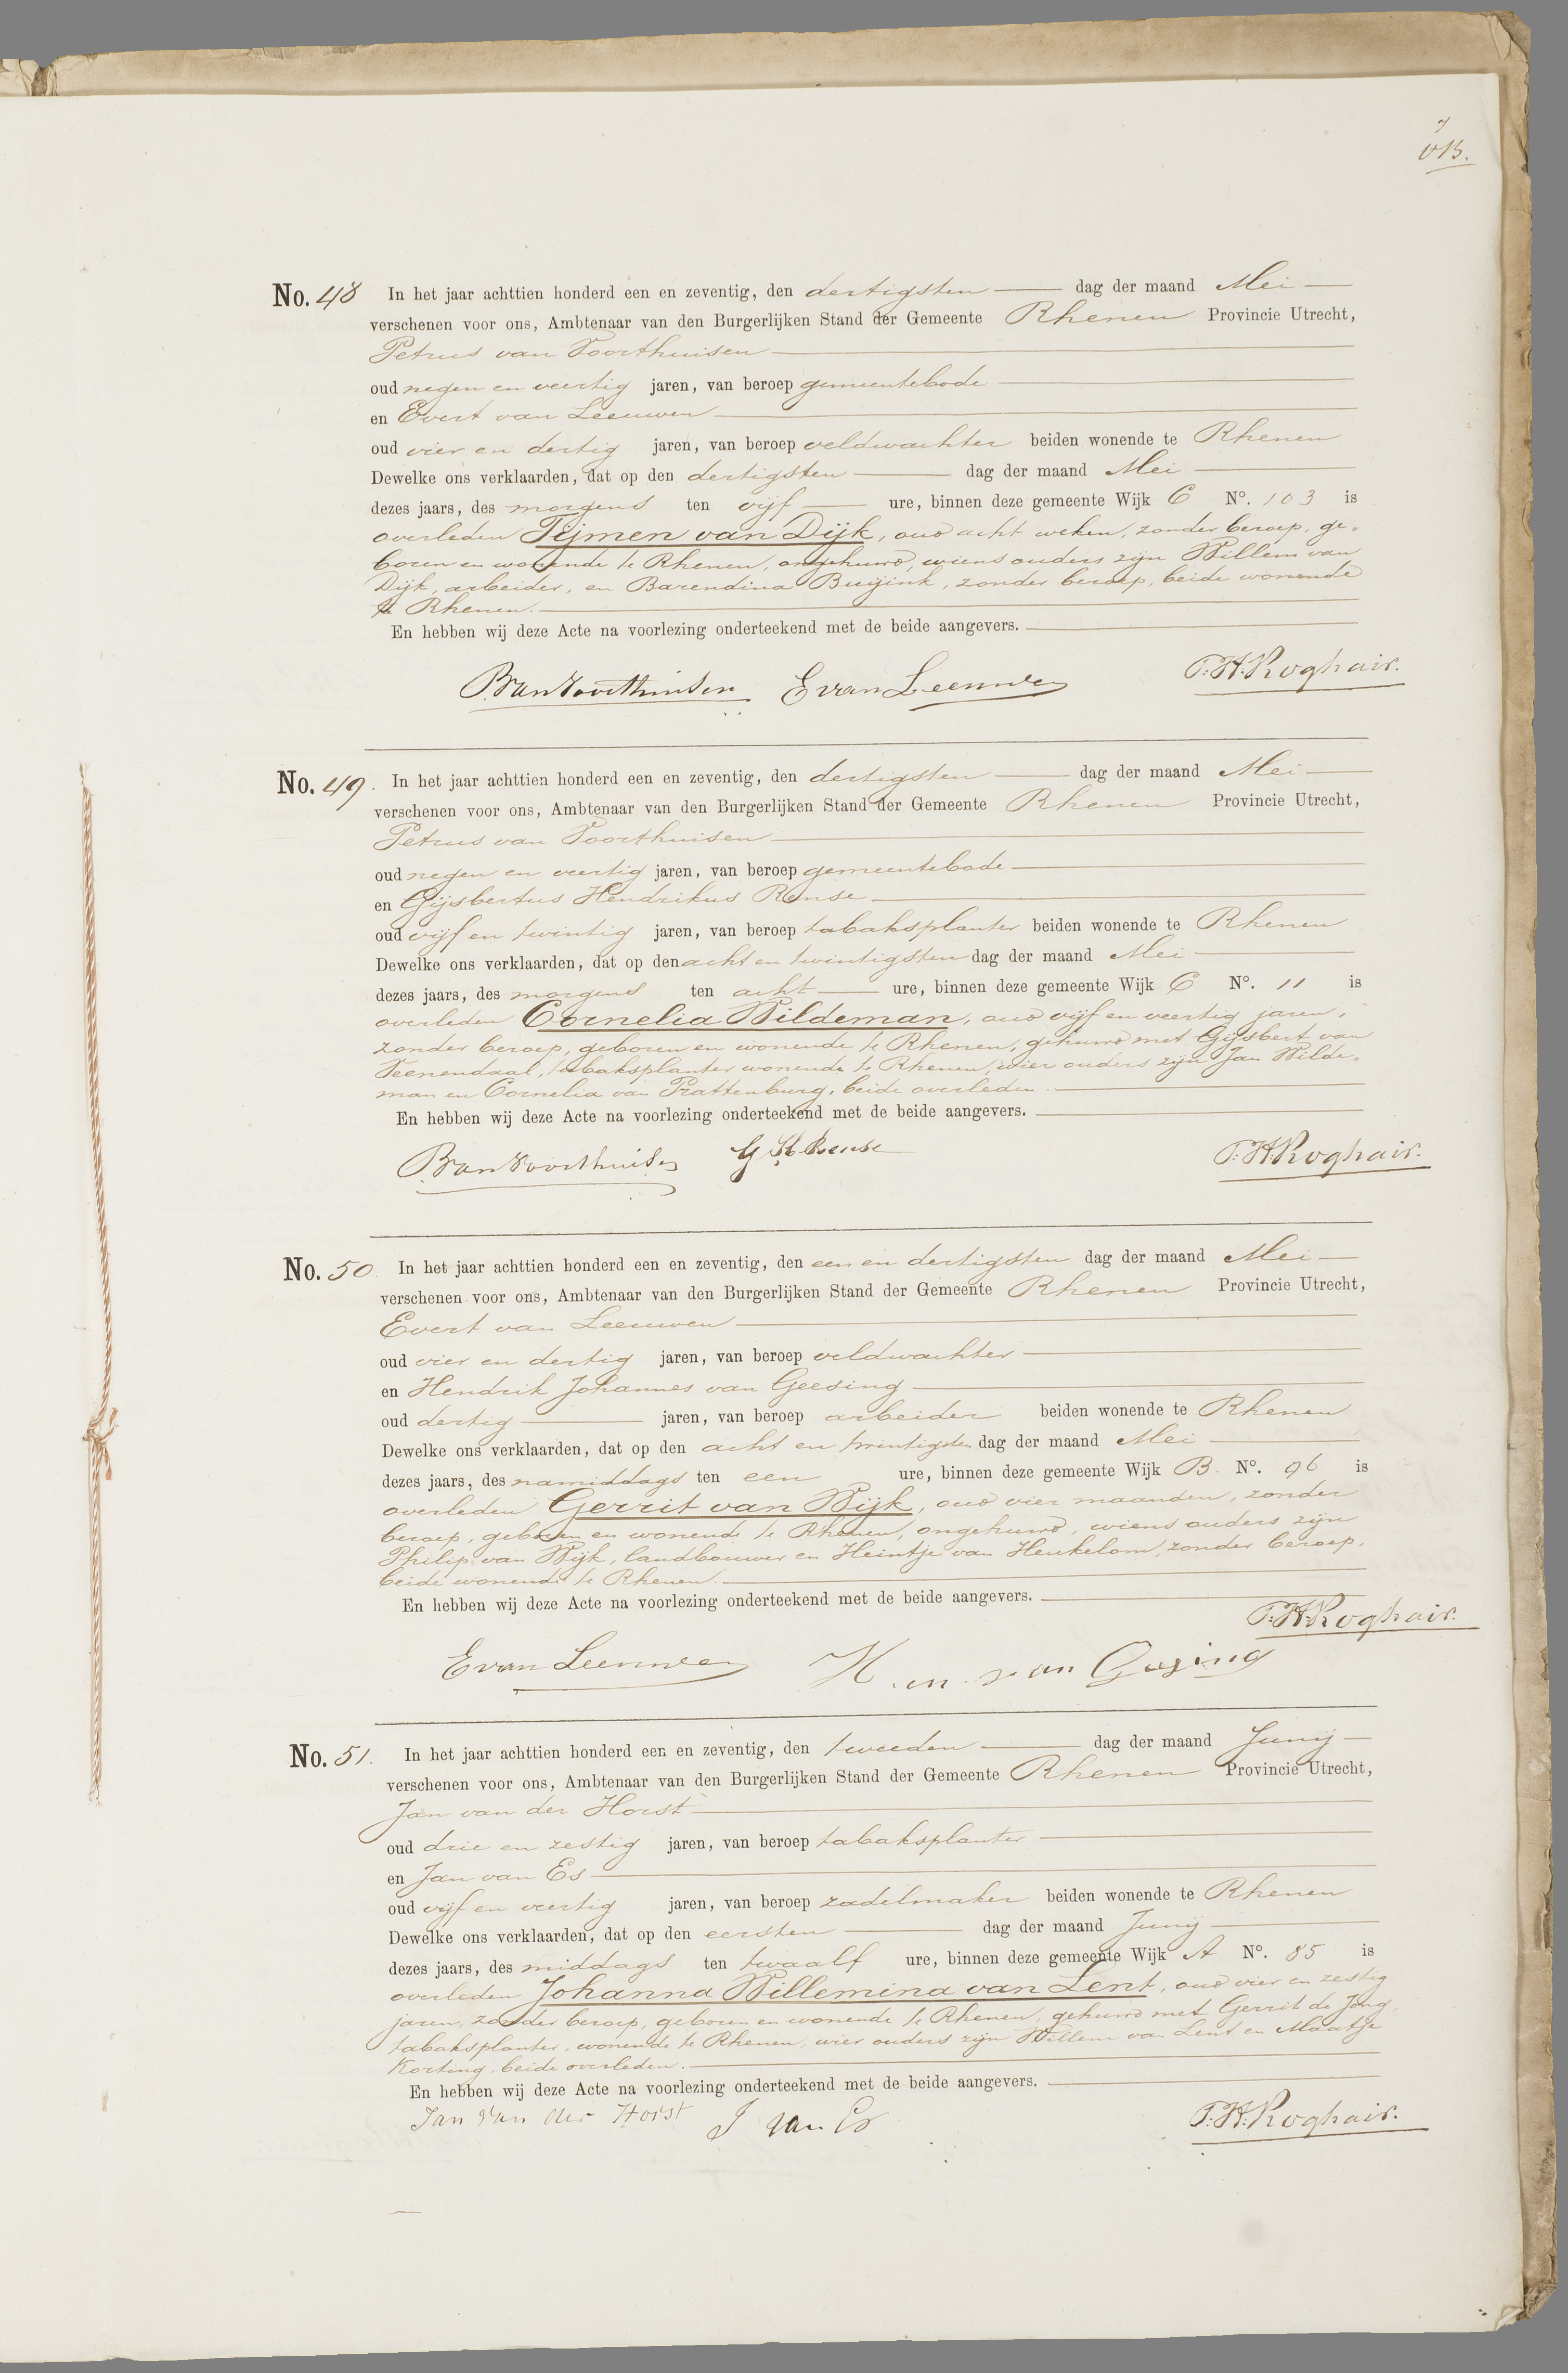 7
No. 48 In het jaar achttien honderd een en zeventig, den dertigsten dag der maand Mei
verschenen voor ons, Ambtenaar van den Burgerlijken Stand der Gemeente Rhenen Provincie Utrecht,
Petrus van Voorthuisen
oud negen en veertig jaren, van beroep gemeentebode
en Evert van Leeuwen
oud vier en dertig jaren, van beroep veldwachter beiden wonende te Rhenen
Dewelke ons verklaarden, dat op den dertigsten dag der maand Mei
dezes jaars, des morgens ten vijf ure, binnen deze gemeente Wijk C No. 103 is
overleden Tijmen van Dijk, oud acht weken, zonder beroep, ge-
boren en wonende te Rhenen, ongehuwd, wiens ouders zijn Willem van
Dijk, arbeider, en Barendina Buijink, zonder beroep, beide wonende
te Rhenen.
En hebben wij deze Acte na voorlezing onderteekend met de beide aangevers.
P van Voorthuisen E van Leeuwen T. H. Roghair.
No. 49. In het jaar achttien honderd een en zeventig, den dertigsten dag der maand Mei
verschenen voor ons, Ambtenaar van den Burgerlijken Stand der Gemeente Rhenen Provincie Utrecht,
Petrus van Voorthuisen
oud negen en veertig jaren, van beroep gemeentebode
en Gijsbertus Hendrikus Rense
oud vijf en twintig jaren, van beroep tabaksplanter beiden wonende te Rhenen
Dewelke ons verklaarden, dat op den acht en twintigsten dag der maand Mei
dezes jaars, des morgens ten acht ure, binnen deze gemeente Wijk C No. 11 is
overleden Cornelia Wildeman, oud vijf en veertig jaren,
zonder beroep, geboren en wonende te Rhenen, gehuwd met Gijsbert van
Veenendaal, tabaksplanter wonende te Rhenen, wier ouders zijn Jan Wilde-
man en Cornelia van Prattenburg, beide overleden.
En hebben wij deze Acte na voorlezing onderteekend met de beide aangevers.
P van Voorthuisen G H Rense T. H. Roghair.
No. 50 In het jaar achttien honderd een en zeventig, den een en dertigsten dag der maand Mei
verschenen voor ons, Ambtenaar van den Burgerlijken Stand der Gemeente Rhenen Provincie Utrecht,
Evert van Leeuwen
oud vier en dertig jaren, van beroep veldwachter
en Hendrik Johannes van Geesing
oud dertig jaren, van beroep arbeider beiden wonende te Rhenen
Dewelke ons verklaarden, dat op den acht en twintigsten dag der maand Mei
dezes jaars, des namiddags ten een ure, binnen deze gemeente Wijk B. No. 96 is
overleden Gerrit van Wijk, oud vier maanden, zonder
beroep, geboren en wonende te Rhenen, ongehuwd, wiens ouders zijn
Philip van Wijk, landbouwer en Heintje van Heukelom, zonder beroep,
beide wonende te Rhenen.
En hebben wij deze Acte na voorlezing onderteekend met de beide aangevers.
T. H. Roghair.
E van Leeuwen H van
No. 51. In het jaar achttien honderd een en zeventig, den tweeden dag der maand Junij
verschenen voor ons, Ambtenaar van den Burgerlijken Stand der Gemeente Rhenen Provincie Utrecht,
Jan van der Horst
oud drie en zestig jaren, van beroep tabaksplanter
en Jan van Es
oud vijf en veertig jaren, van beroep zadelmaker beiden wonende te Rhenen
Dewelke ons verklaarden, dat op den eersten dag der maand Junij
dezes jaars, des middags ten twaalf ure, binnen deze gemeente Wijk A No. 85 is
overleden Johanna Willemina van Lent, oud vier en zestig
jaren, zonder beroep, geboren en wonende te Rhenen, gehuwd met Gerrit de Jong,
tabaksplanter, wonende te Rhenen, wier ouders zijn Willem van Lent en Maatje
Korting, beide overleden.
En hebben wij deze Acte na voorlezing onderteekend met de beide aangevers.
Jan van der Horst J van Es T. H. Roghair.